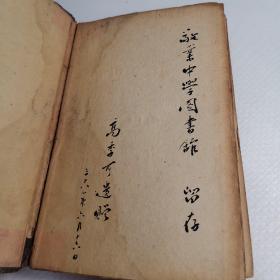 敬業中學圖書館 留存
高季可遺贈
六月十六日